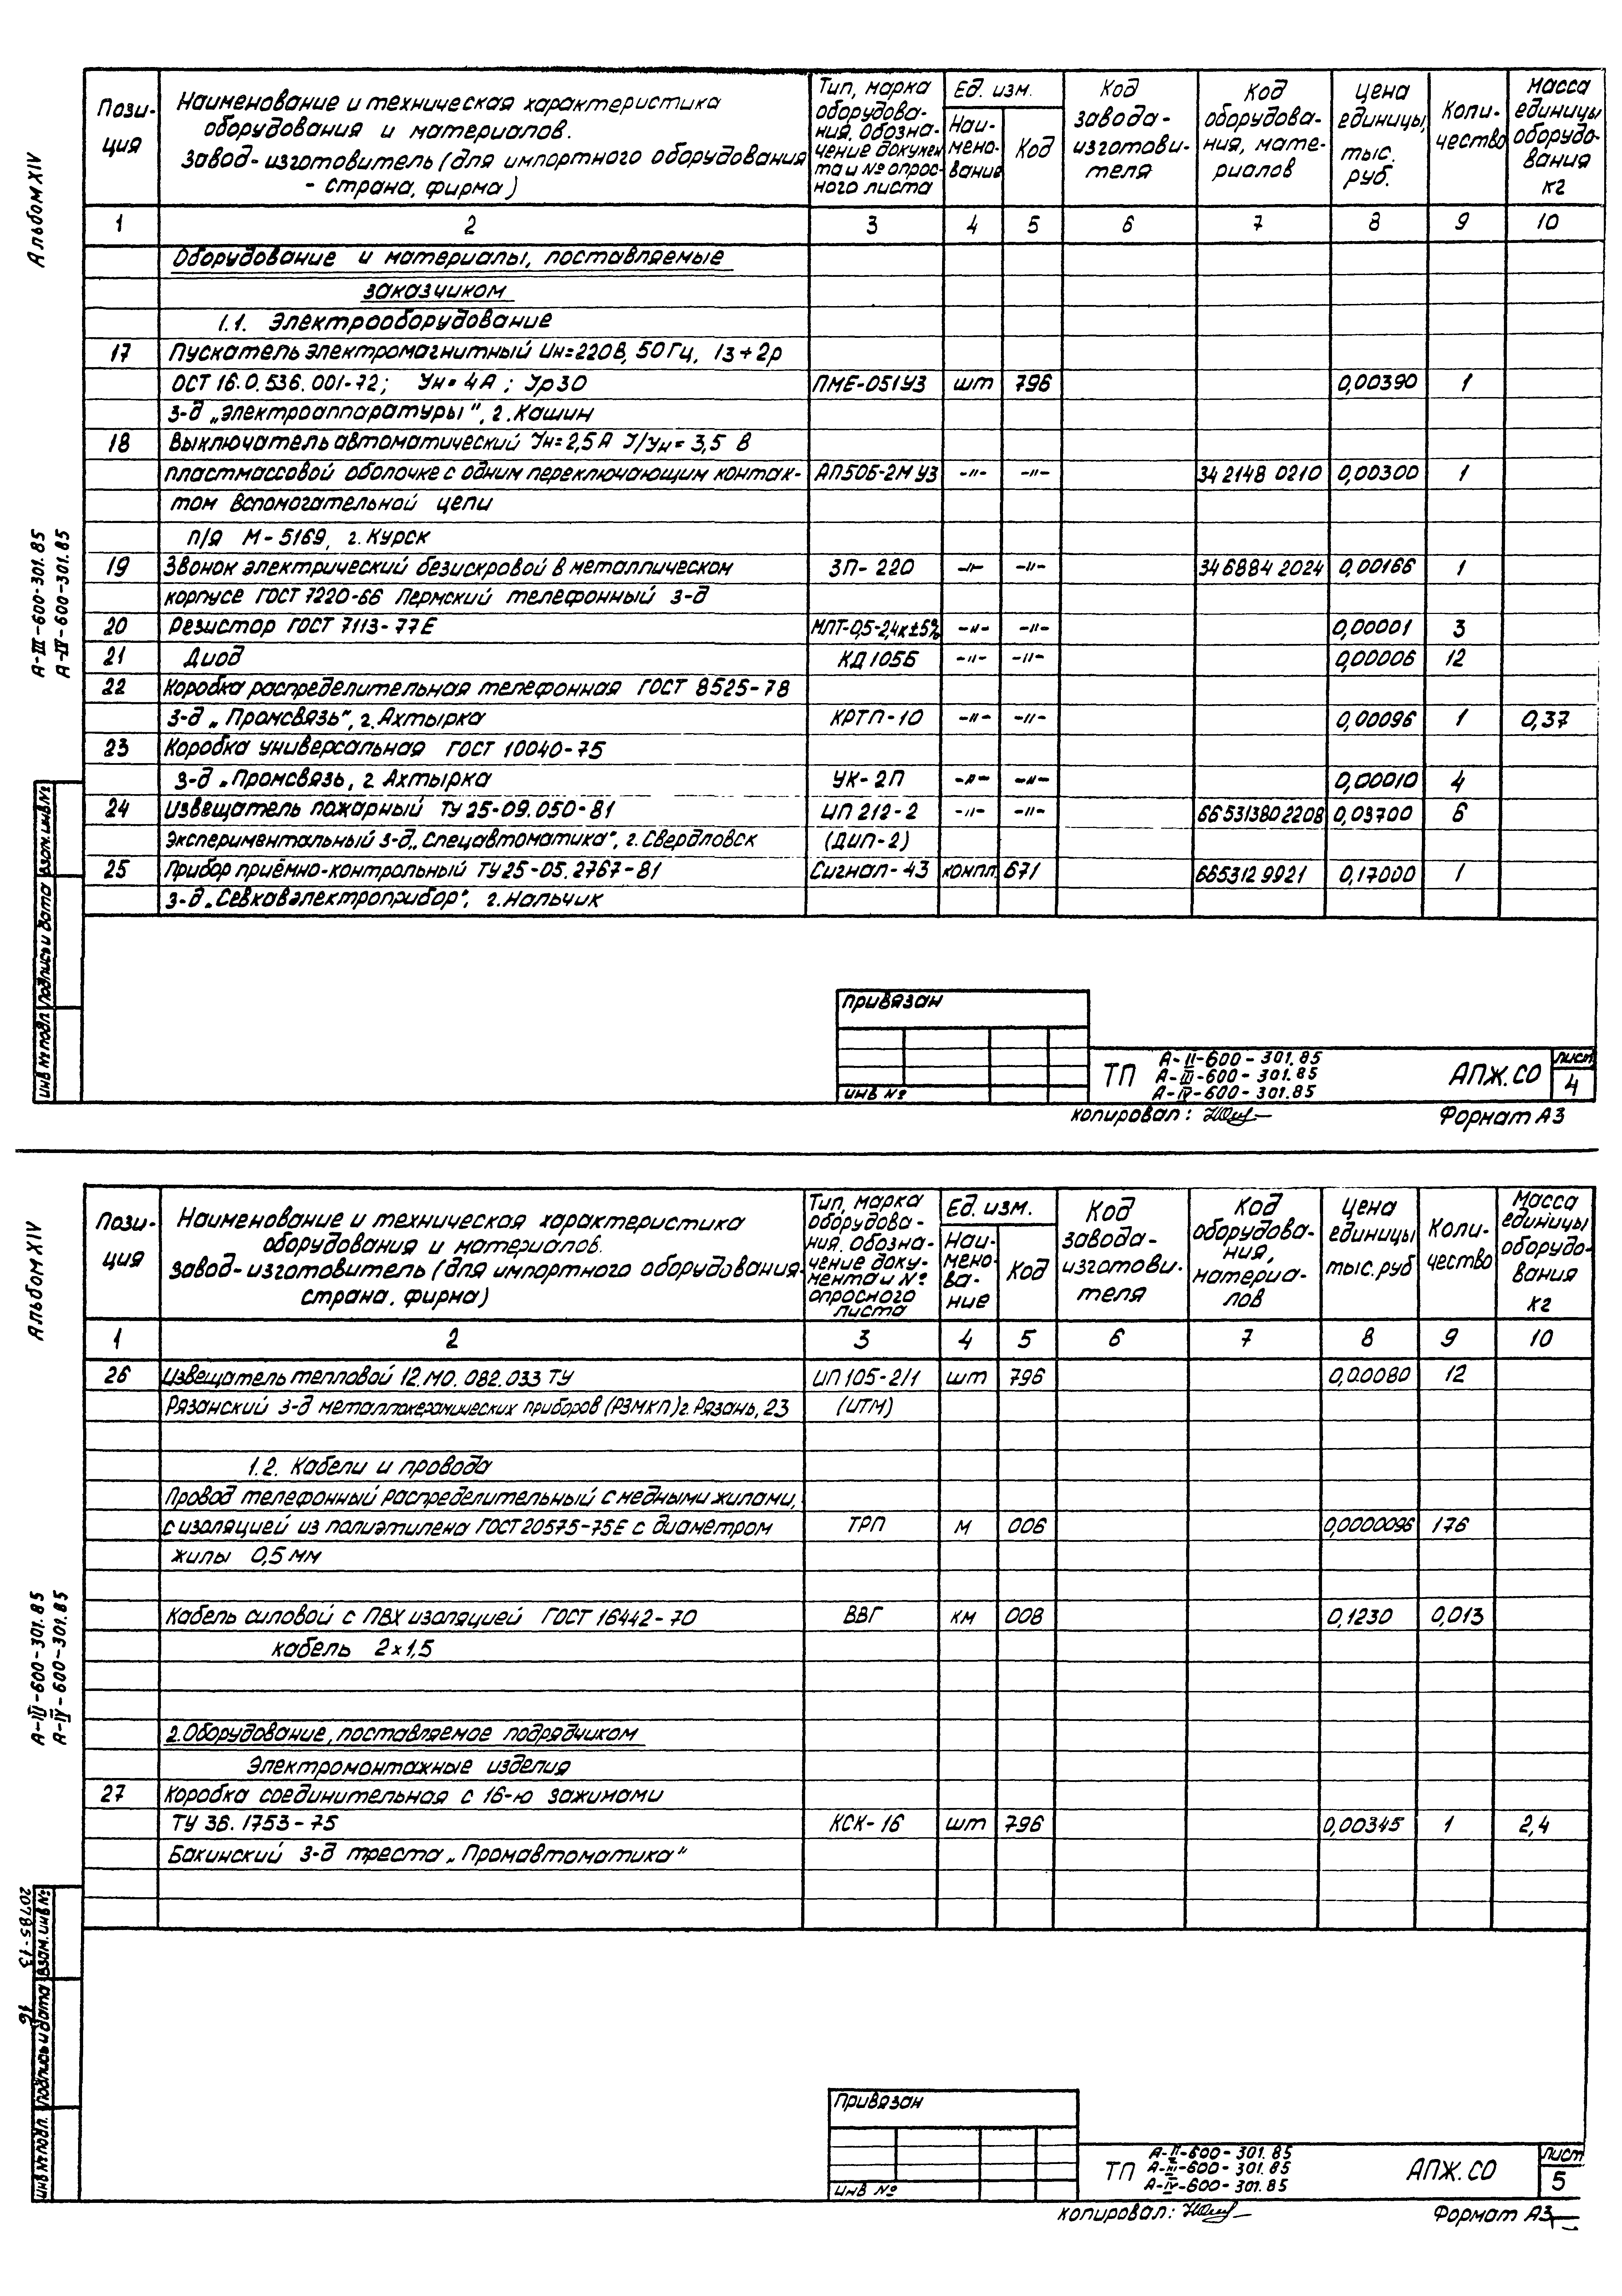 Альбом XIV
Пози-
ция
Наименование и техническая характеристика
оборудования и материалов.
Завод-изготовитель (для импортного оборудования
- страна, фирма)
Тип, марка
оборудова-
ния. Обозна-
чение докумен
та и № опрос-
ного листа
Ед. изм.
Наи-
мено-
вание
Код
Код
завода-
изготови-
теля
Код
оборудова-
ния, мате-
риалов
Цена
единицы,
тыс.
руб.
Коли-
чество
Масса
единицы
оборудо-
вания
кг
1 2 3 4 5 6 7 8 9 10
Оборудование и материалы, поставляемые
заказчиком
1.1. Электрооборудование
17 Пускатель электромагнитный Uн=220В, 50Гц, 1з+2р
ОСТ 16.0.536.001-72; Jн=4А; Jр30 ПМЕ-051У3 шт 796 0,00390 1
з-д „Электроаппаратуры", г.Кашин
18 Выключатель автоматический Jн=2,5А J/Jн=3,5 в
пластмассовой оболочке с одним переключающим контак- АП50Б-2М У3 -"- -"- 34 2148 0210 0,00300 1
том вспомогательной цепи
п/я М-5169, г.Курск
19 Звонок электрический безискровой в металлическом ЗП-220 -"- -"- 34 6884 2024 0,00166 1
корпусе ГОСТ 7220-66 Пермский телефонный з-д
20 Резистор ГОСТ 7113-77Е МЛТ-0,5-2,4к±5% -"- -"- 0,00001 3
21 Диод КД105Б -"- -"- 0,00006 12
22 Коробка распределительная телефонная ГОСТ 8525-78
з-д „Промсвязь", г.Ахтырка КРТП-10 -"- -"- 0,00096 1 0,37
23 Коробка универсальная ГОСТ 10040-75
з-д „Промсвязь, г.Ахтырка УК-2П -"- -"- 0,00010 4
24 Извещатель пожарный ТУ 25-09.050-81 ИП 212-2 -"- -"- 665313802208 0,03700 6
Экспериментальный з-д „Спецавтоматика", г.Свердловск (ДИП-2)
25 Прибор приёмно-контрольный ТУ25-05.2767-81 Сигнал-43 компл. 671 665312 9921 0,17000 1
з-д „Севкавэлектроприбор", г.Нальчик
А-III-600-301.85
А-IV-600-301.85
Взам.инв№
Подпись и дата
Инв № подл
привязан
инв №
ТП
А-II-600-301.85
А-III-600-301.85
А-IV-600-301.85
АПЖ.СО
лист
4
копировал:
Формат А3
Альбом XIV
Пози-
ция
Наименование и техническая характеристика
оборудования и материалов.
Завод-изготовитель (для импортного оборудования-
страна, фирма)
Тип, марка
оборудова-
ния. Обозна-
чение доку-
мента и №
опросного
листа
Ед. изм.
Наи-
мено-
ва-
ние
Код
Код
завода-
изготови-
теля
Код
оборудова-
ния,
материа-
лов
Цена
единицы
тыс.руб
Коли-
чество
Масса
единицы
оборудо-
вания
кг
1 2 3 4 5 6 7 8 9 10
26 Извещатель тепловой 12.МО.082.033 ТУ ИП 105-2/1 шт 796 0,00080 12
Рязанский з-д металлокерамических приборов (РЗМКП) г.Рязань, 23 (ИТМ)
1.2. Кабели и провода
Провод телефонный распределительный с медными жилами,
с изоляцией из полиэтилена ГОСТ 20575-75Е с диаметром ТРП м 006 0,0000096 176
жилы 0,5мм
Кабель силовой с ПВХ изоляцией ГОСТ 16442-70 ВВГ км 008 0,1230 0,013
кабель 2×1,5
2.Оборудование, поставляемое подрядчиком
Электромонтажные изделия
27 Коробка соединительная с 16-ю зажимами
ТУ 36.1753-75 КСК-16 шт 796 0,00345 1 2,4
Бакинский з-д треста „Промавтоматика"
А-III-600-301.85
А-IV-600-301.85
20785-13
Взам.инв№
Подпись и дата
Инв № подл.
Привязан
инв №
ТП
А-II-600-301.85
А-III-600-301.85
А-IV-600-301.85
АПЖ.СО
лист
5
копировал:
Формат А3